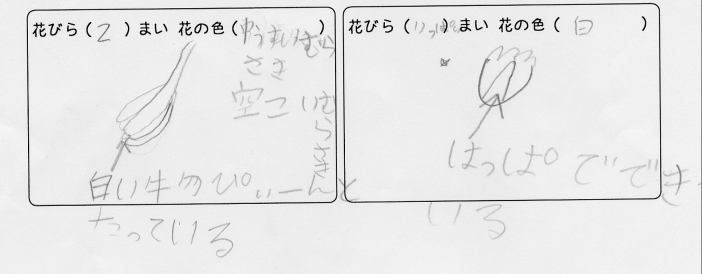 花びら（2）まい 花の色（うすいむら
さき
空こいむらさき
白い牛勿ぴぃーんと
たっている
花びら（いっぱい）まい 花の色（白）
はっぱ。でできて
いる